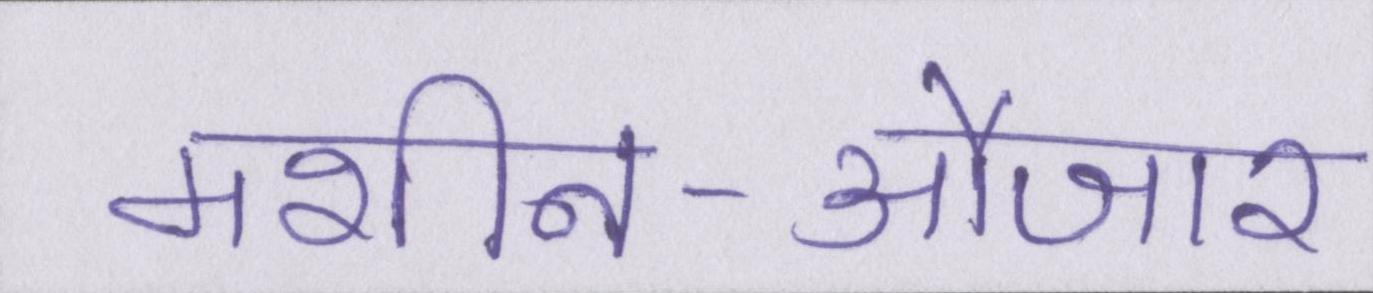 मशीन-औजार